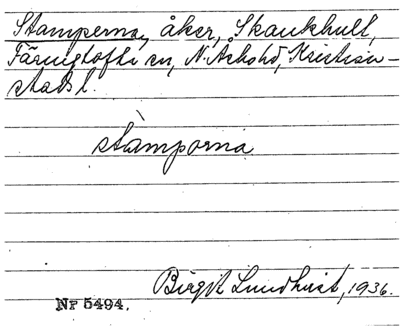 Stamperna, åker, Skankhult,
Färingtofta sn, N. Åsbohd, Kristian-
stads l.
stàmporna
Birgit Lundkvist, 1936.
Nr 5494.